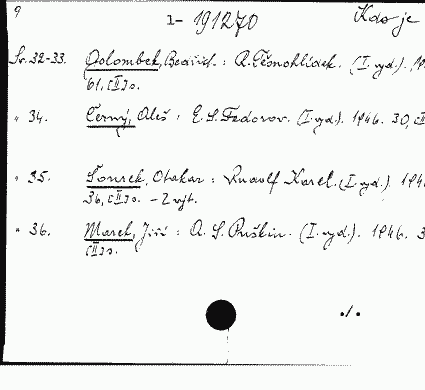 9
1-191270
Kdo je
Sv. 32-33. Golombek, Bedřich: R. Těsnohlídek. (I. vyd.).
61, [II] s.
" 34. Černý, Aleš: E. S. Fedorov. (I. vyd.). 1946. 30, [II
" 35. Šourek, Otakar: Rudolf Karel. (I. vyd.). 194
36, [II] s. - 2 výt.
" 36. Marek, Jiří: A. S. Puškin. (I. vyd.). 1946. 3
[II] s.
./.